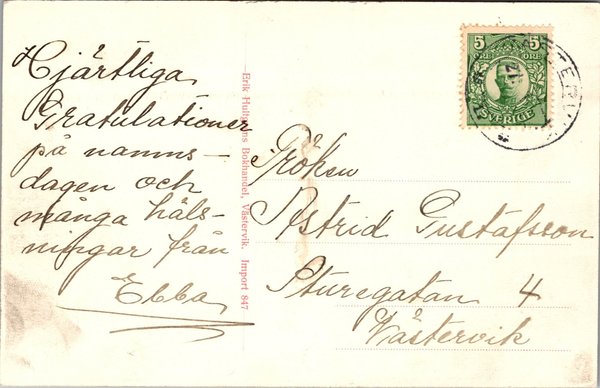 Hjärtliga
Gratulationer
på namns-
dagen och
många häls-
ningar från
Ebba
Erik Hultgrens Bokhandel, Västervik. Import 847
5 5
ÖRE ÖRE
SVERIGE
Fröken
Astrid Gustafsson
Sturegatan 4
Västervik